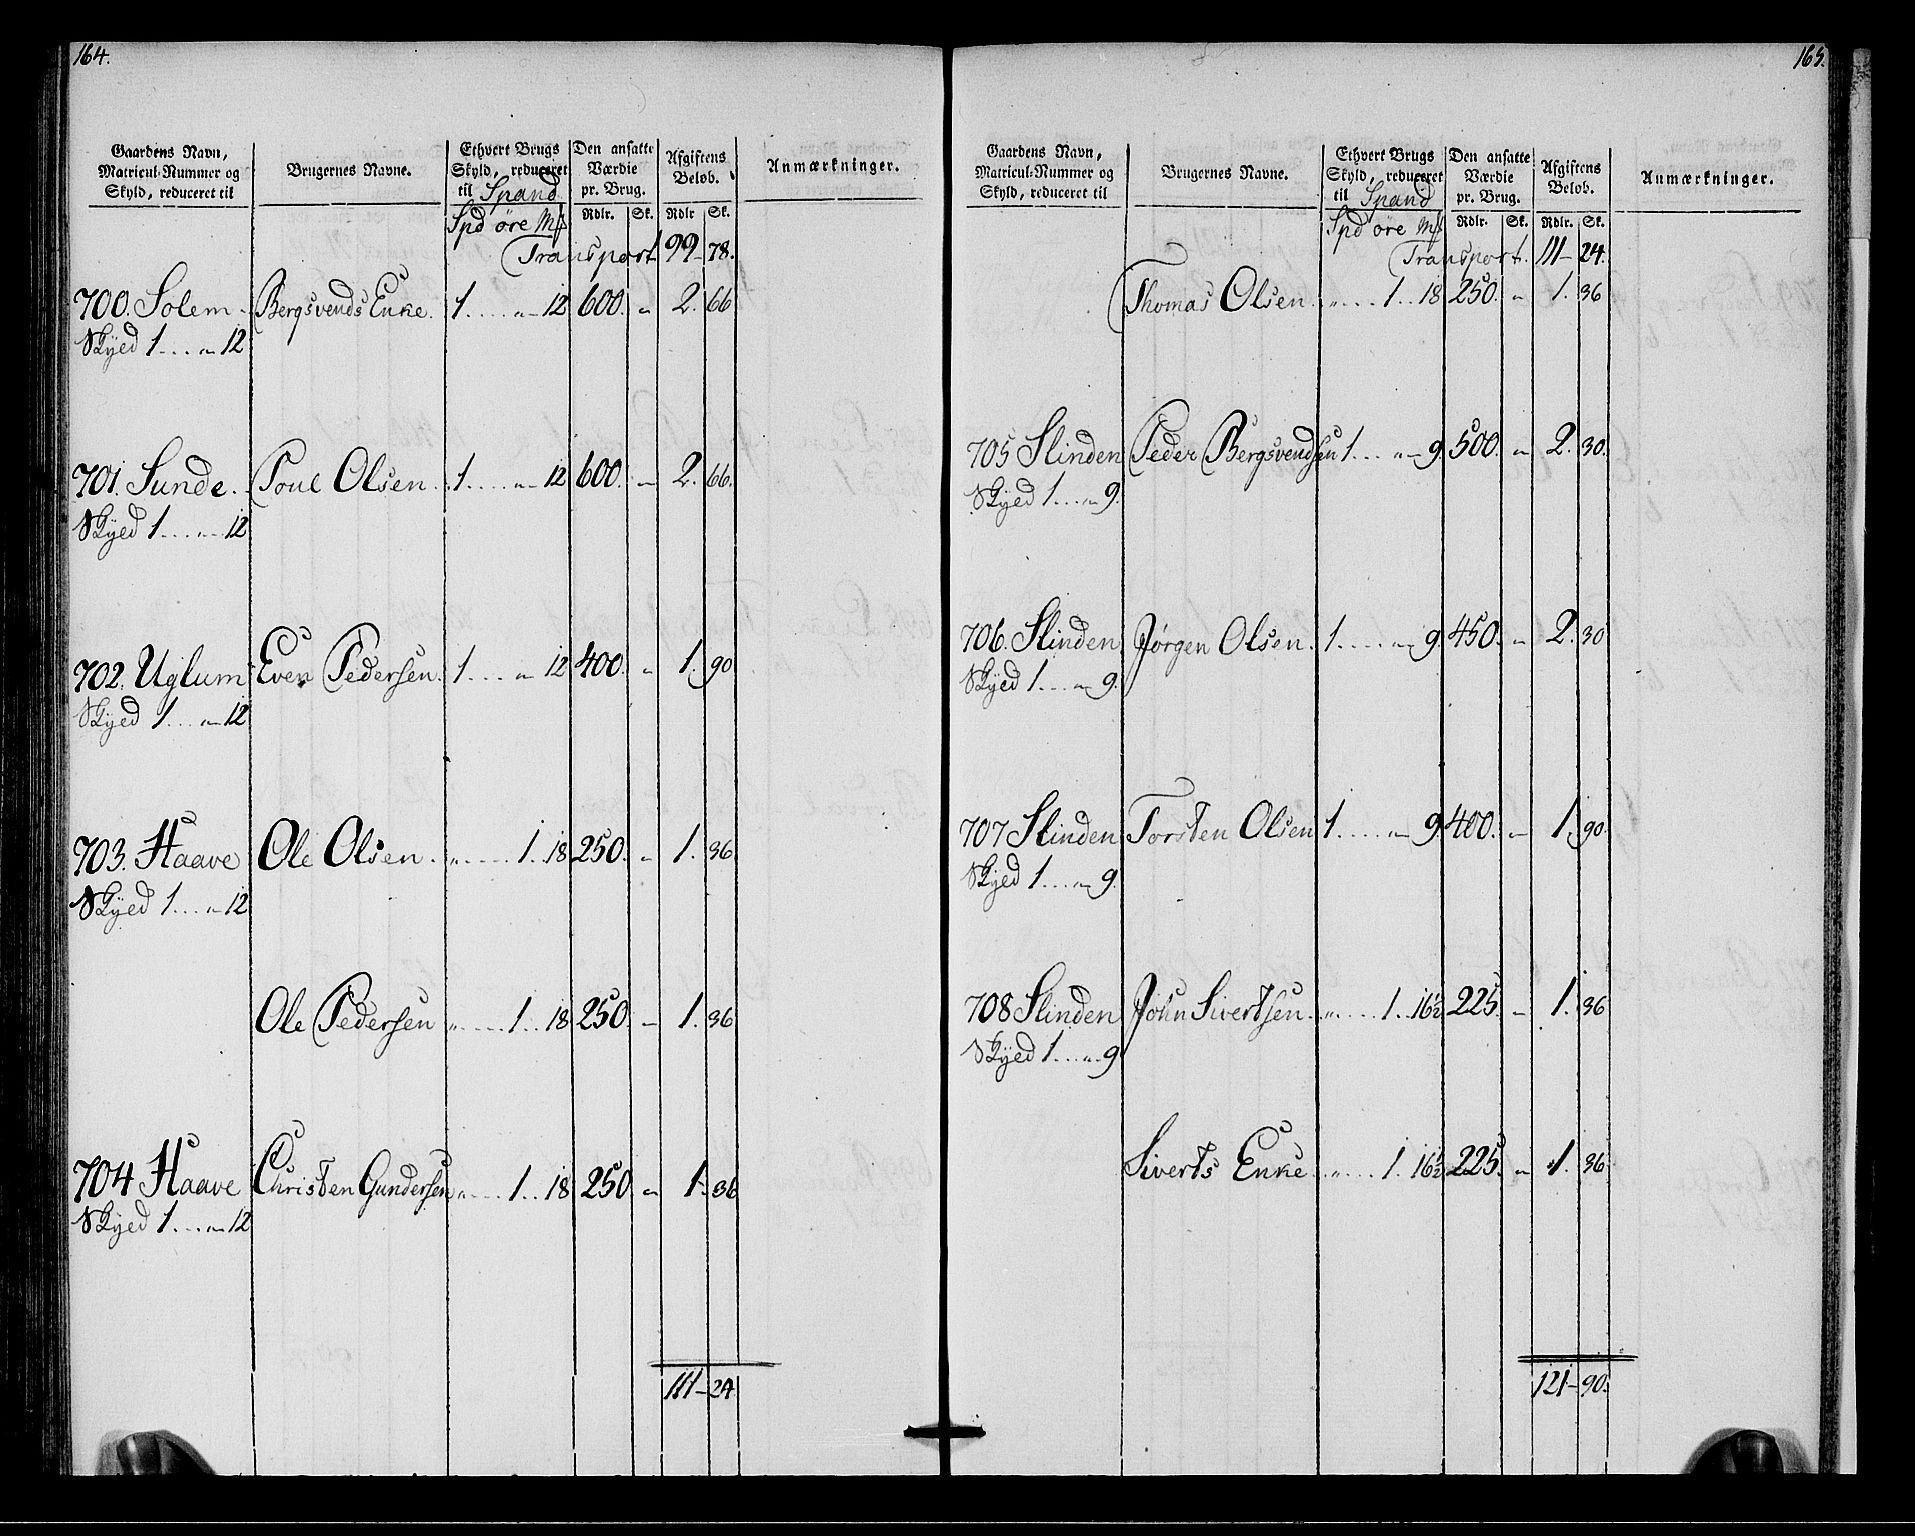 164.
Gaardens Navn, Matricul-Nummer og Skyld, reduceret til
Brugernes Navne.
Ethvert Brugs Skyld, reduceret til Spand
Den ansatte Værdie pr. Brug.
Afgiftens Beløb.
Anmærkninger.
Spd øre Mk Rdlr. Sk. Rdlr Sk.
Transport 99 - 78.
700. Solem. Bergsvends Enke. 1.... „ - 12 600. „ 2. 66
Skyed 1.... „ - 12
701. Sunde. Poul Olsen. 1..... „ - 12 600. - 2. 66.
Skyed 1.... „ - 12
702. Uglum Even Pedersen. 1.... „ 12 400. „ 1. 90
Skyed 1... „ - 12
703. Haave Ole Olsen. „..... 1. 18 250. „ 1. 36
Skyed 1... „ 12
Ole Pedersen „..... 1.. 18 250. - 1. 36
704 Haave Christen Gundersen „.... 1.. 18 250 „ 1. 36
Skyed 1... „ - 12
111 - 24.
165.
Gaardens Navn, Matricul-Nummer og Skyld, reduceret til
Brugernes Navne.
Ethvert Brugs Skyld, reduceret til Spand
Den ansatte Værdie pr. Brug.
Afgiftens Beløb.
Anmærkninger.
Spd øre Mk Rdlr. Sk. Rdlr. Sk.
Transport. 111 - 24.
Thomas Olsen. „.... 1.. 18 250. „ 1. 36
705 Slinden Peder Bergsvendsen 1.... „ - 9 500. „ 2. 30.
Skyed 1... „ 9.
706. Slinden Jørgen Olsen. 1..... „ 9. 450. „ 2. 30
Skyed 1... „ 9.
707 Slinden Torsten Olsen 1..... „ - 9 400. - 1. 90.
Skyed 1... „ 9.
708 Slinden John Sivertsen. „.... 1.. 16½ 225. - 1. 36
Skyed 1... „ 9
Siverts Enke. „.... 1. 16½ 225. „ 1. 36
121 - 90.